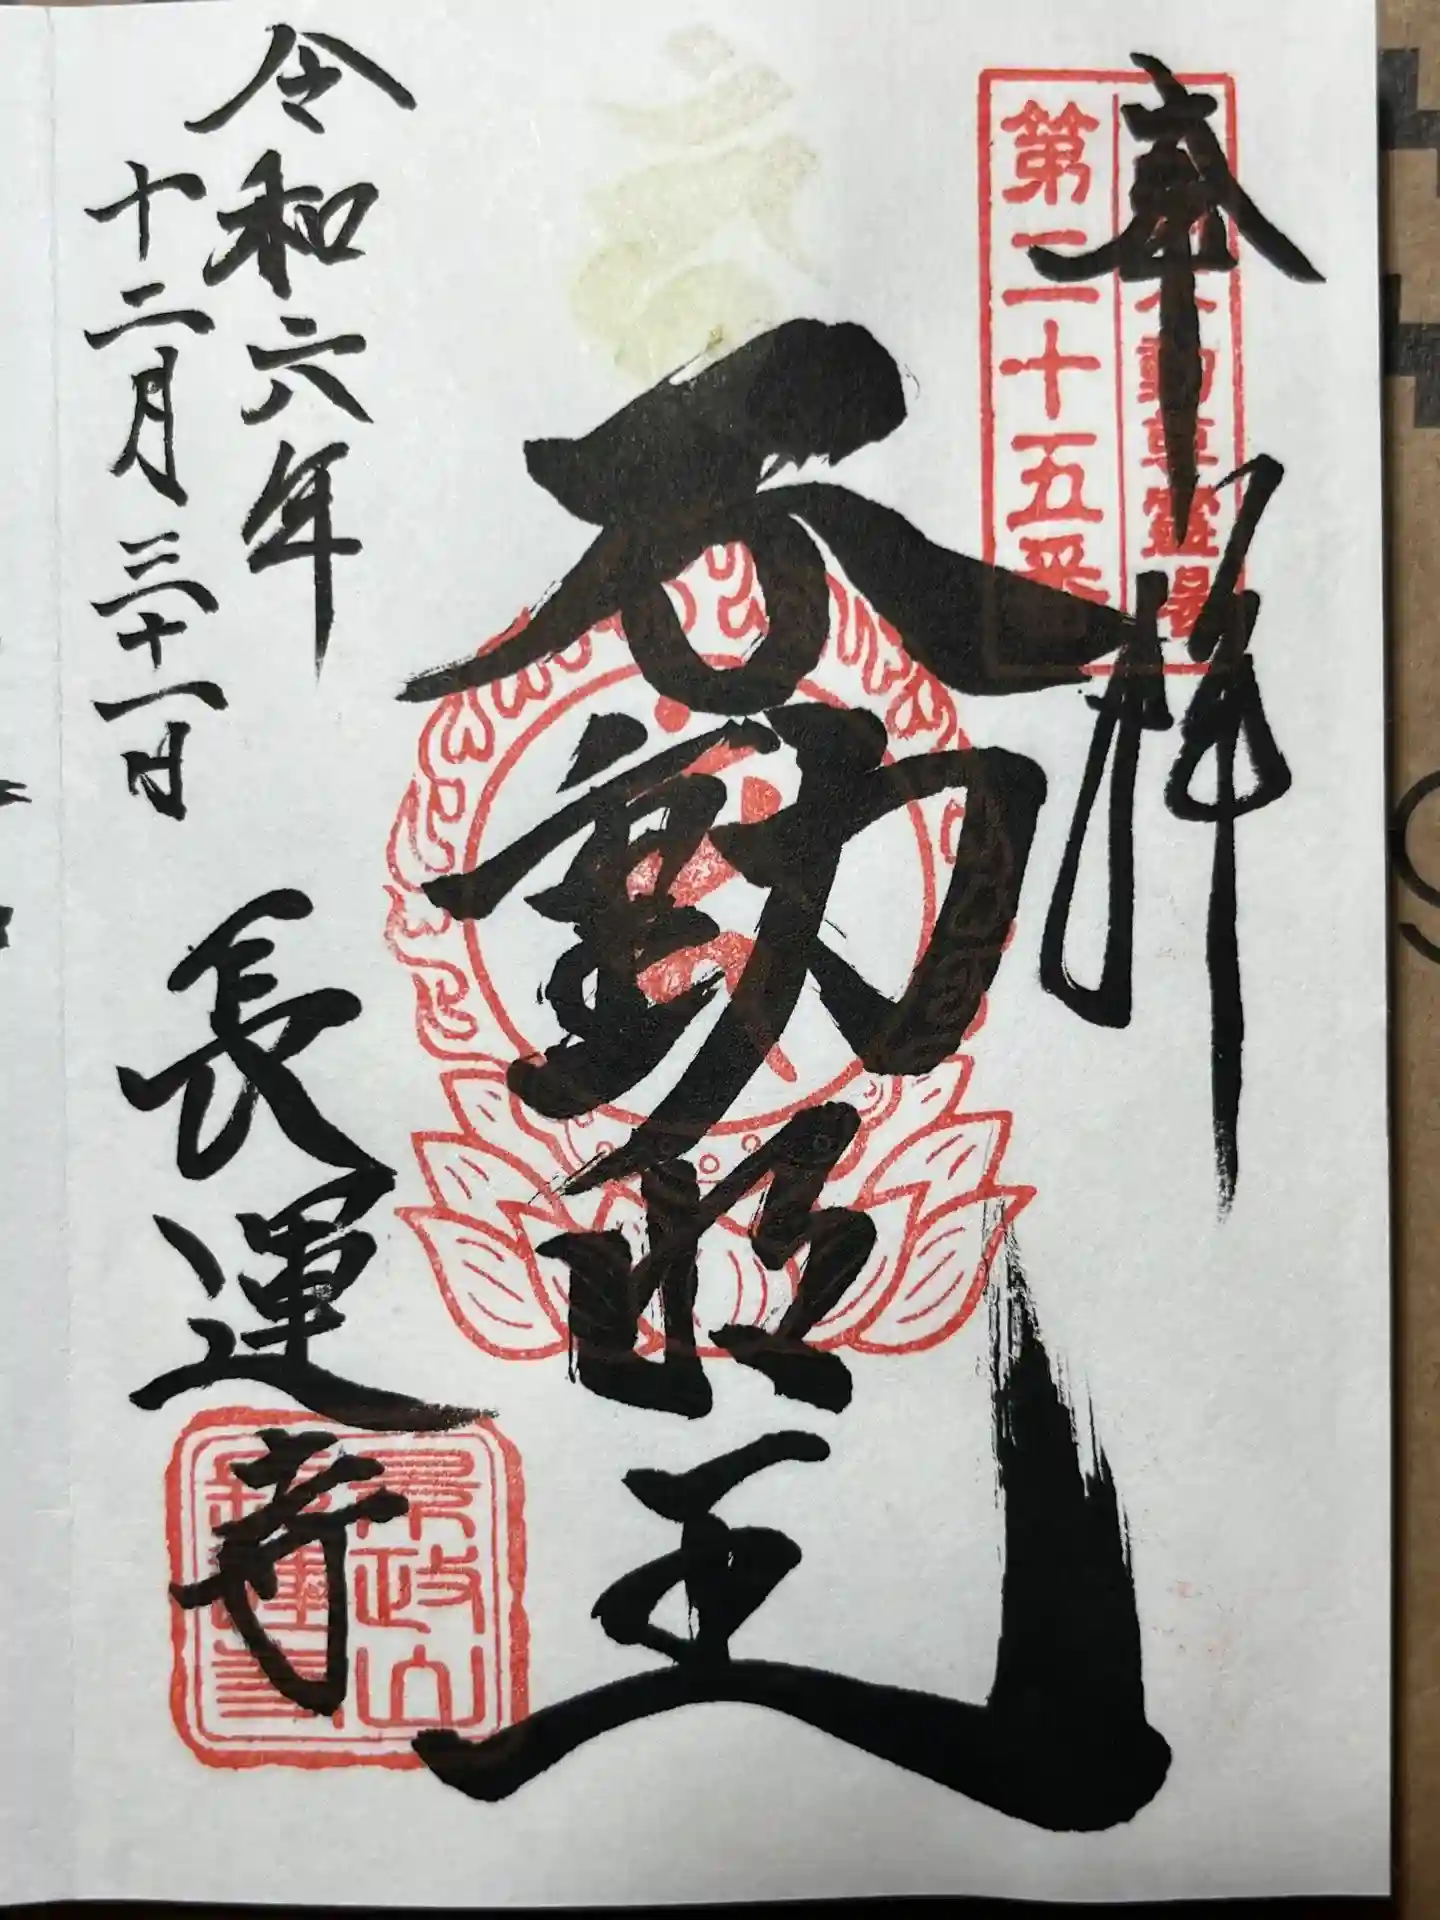 奉拝
不動明王
令和六年
十二月三十一日
長運寺
不動尊霊場
第二十五番